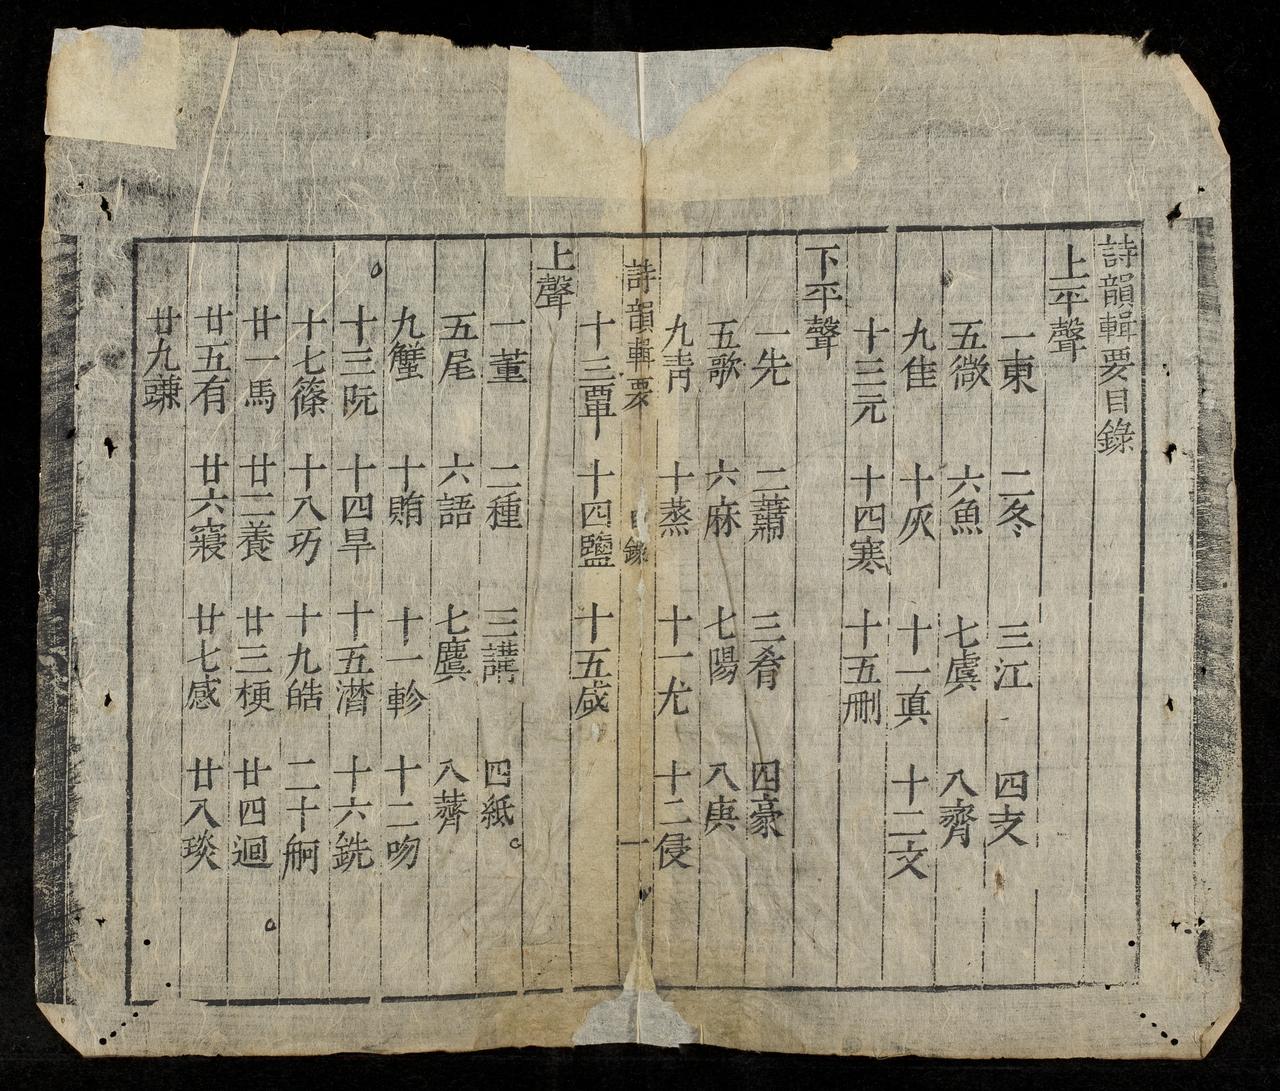 詩韻輯要目錄
上平聲
一東 二冬 三江 四支
五微 六魚 七虞 八齊
九佳 十灰 十一真 十二文
十三元 十四寒 十五刪
下平聲
一先 二蕭 三肴 四豪
五歌 六麻 七陽 八庚
九青 十蒸 十一尤 十二侵
詩韻輯要 目錄 一
十三覃 十四鹽 十五咸
上聲
一董 二種 三講 四紙
五尾 六語 七麌 八薺
九蟹 十賄 十一軫 十二吻
十三阮 十四旱 十五潸 十六銑
十七篠 十八巧 十九皓 二十哿
廿一馬 廿二養 廿三梗 廿四迴
廿五有 廿六寢 廿七感 廿八琰
廿九豏